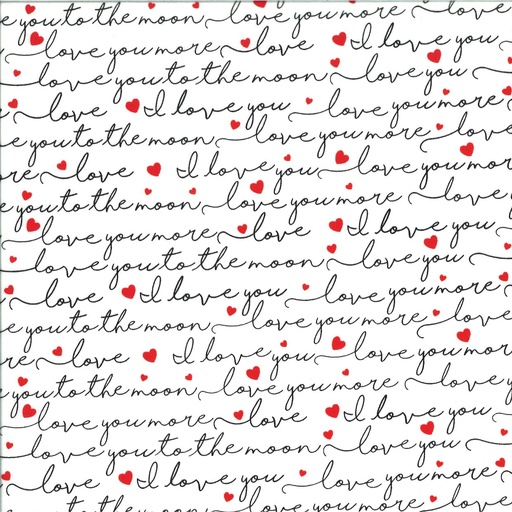 e you to the moon love you more love
love you more love I love you
love you to the moon love you
love I love you love you more
e you to the moon love you more love
re love I love you love you mor
e you to the moon love you more love
love you more love I love you
love you to the moon love you
love I love you love you more
e you to the moon love you more love
re love I love you love you mor
e you to the moon love you more love y
love you more love I love you
love you to the moon love you
love I love you love you more
you to the moon love you more love